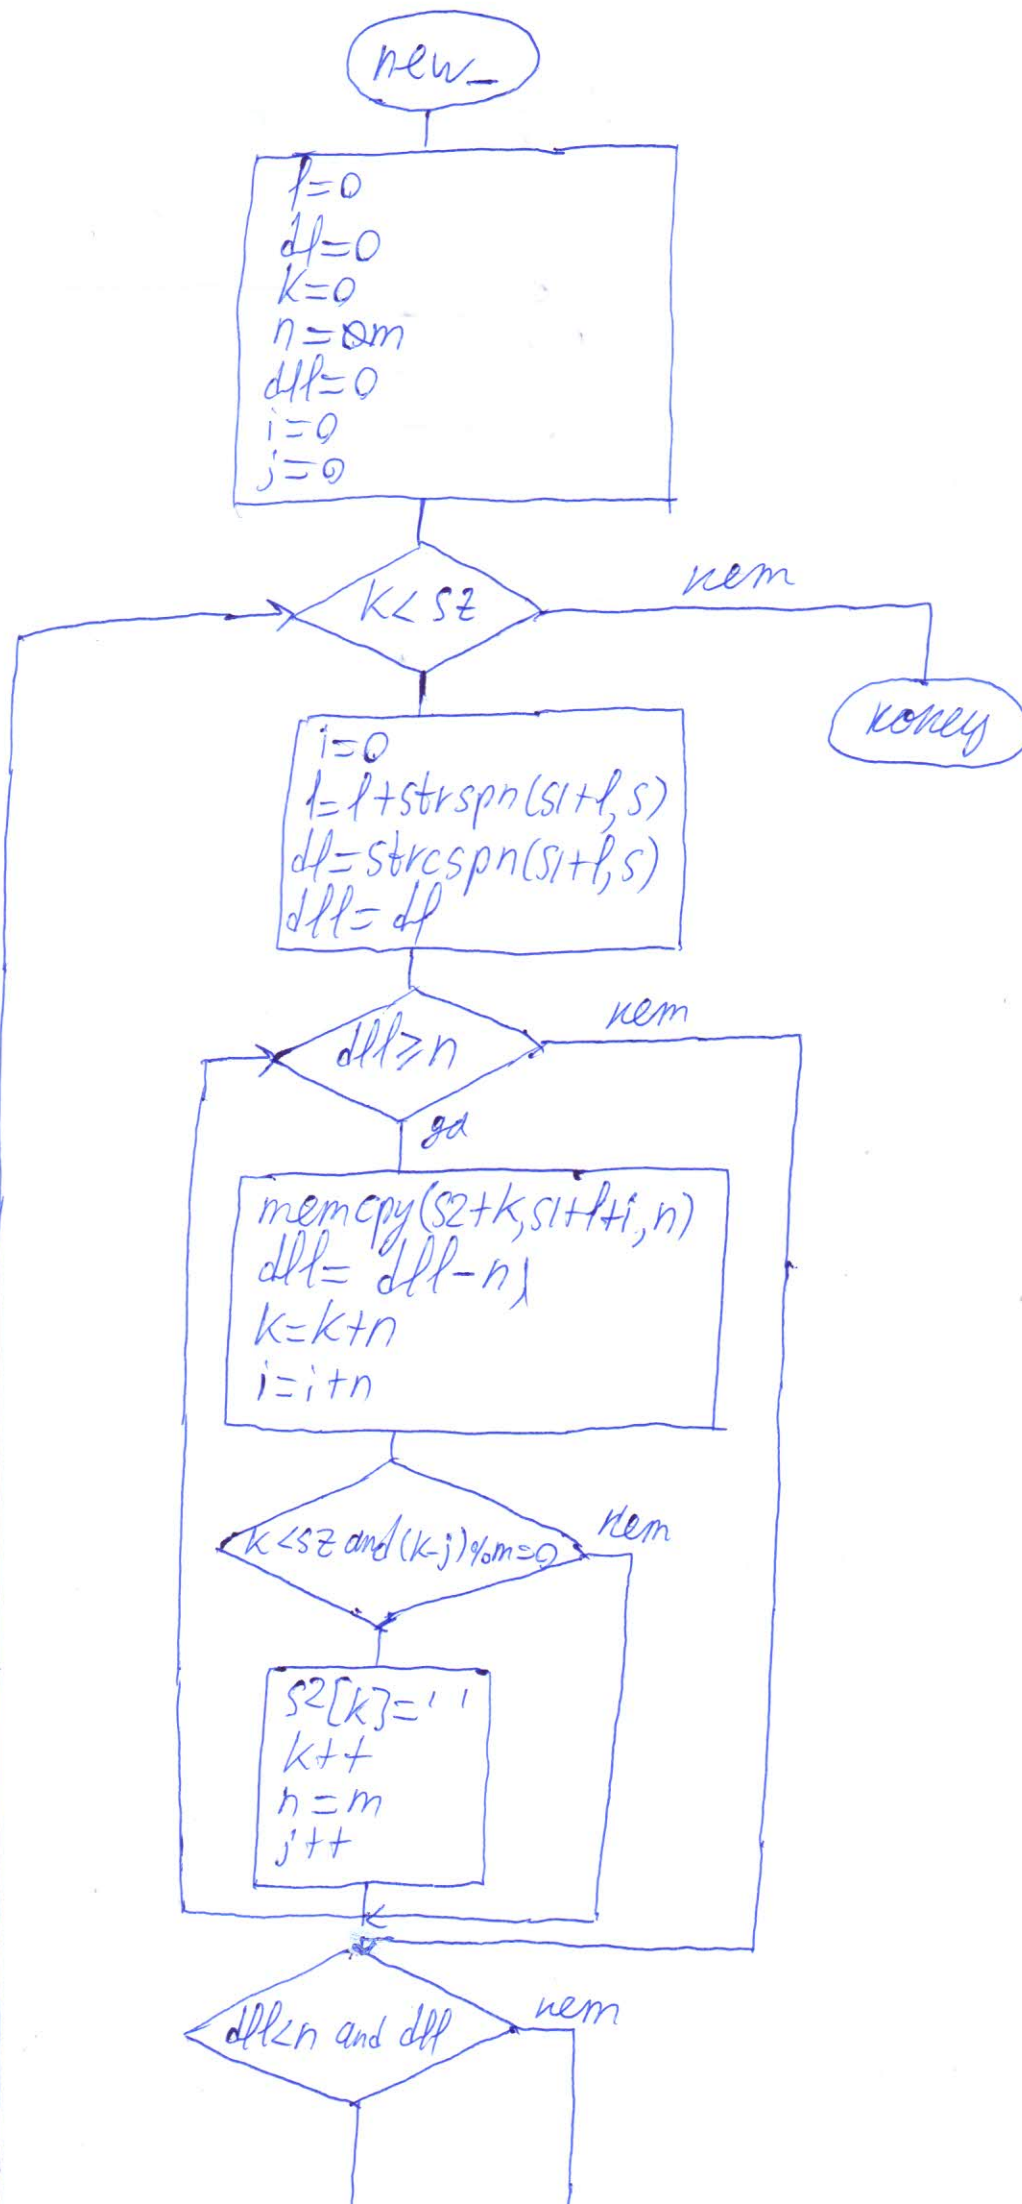 new_
l=0
dl=0
k=0
n=m
dll=0
i=0
j=0
k<sz
нет
конец
i=0
l=l+strspn(s1+l,s)
dl=strcspn(s1+l,s)
dll=dl
dll≥n
нет
да
memcpy(s2+k,s1+l+i,n)
dll=dll-n;
k=k+n
i=i+n
k<sz and (k-j)%m=0
нет
s2[k]=' '
k++
n=m
j++
dll<n and dll
нет